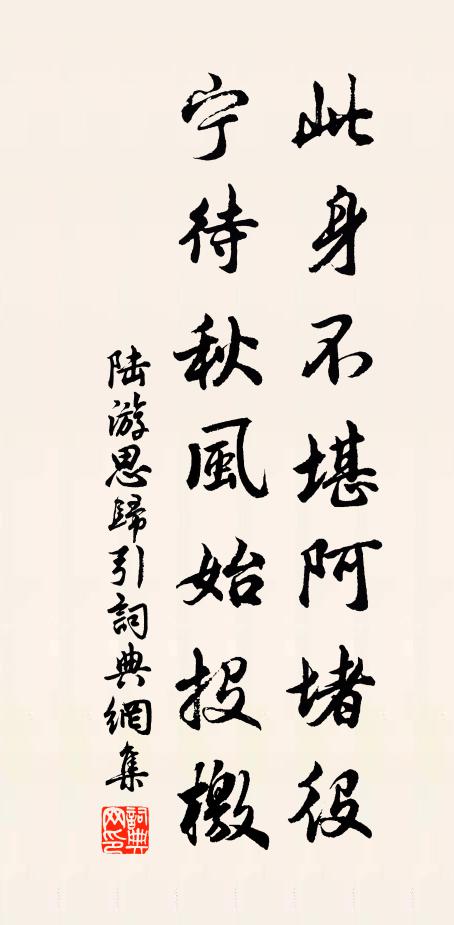 此身不堪阿堵役
宁待秋風始投檄
陆游思歸引詞典網集
詞典網印